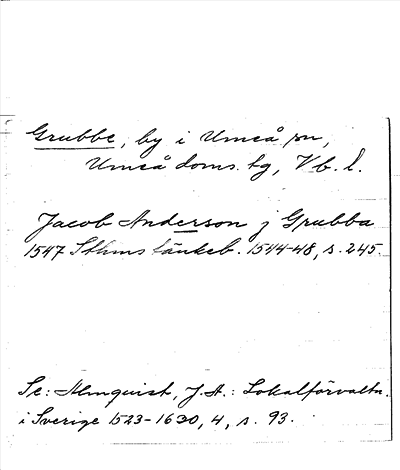 Grubbe, by i Umeå sn,
Umeå doms. tg, Vb. l.
Jacob Anderson j Grubba
1547 Sthms tänkeb. 1544-48, s. 245.
Se: Almquist, J.A.: Lokalförvaltn.
i Sverige 1523-1630, 4, s. 93.